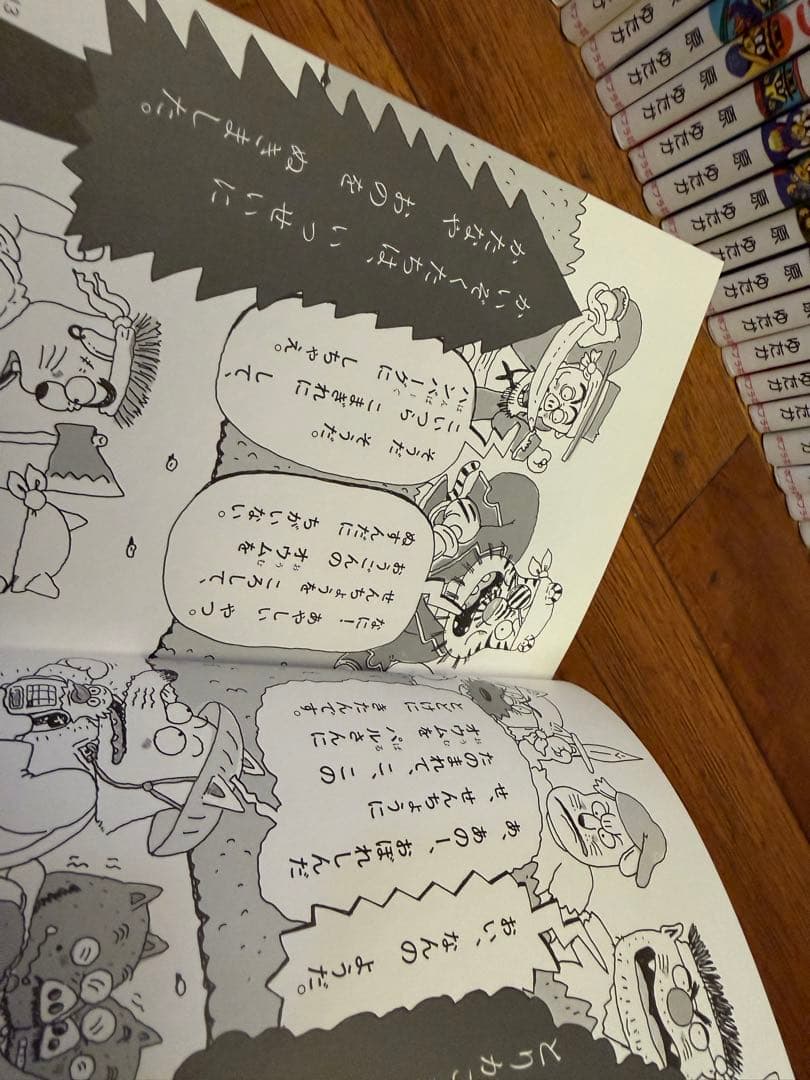 とりかこ
おい、なんの ようだ。
あ、あのー、おぼれしんだ
せ、せんちょうに
たのまれて、こ、この
オウムを パルさんに
おうむ ぱる
とどけに きたんです。
なにー あやしい やつ。
せんちょうを ころして、
おうごんの オウムを
おうむ
ぬすんだに ちがいない。
そうだ そうだ。
こいつら こまぎれに して、
ハンバーグに しちゃえ。
はんばーぐ
かいぞくたちは、 いっせいに
かたなや おのを ぬきました。
13
原 ゆたか
原 ゆたか
原 ゆたか
原 ゆたか
原 ゆたか
原 ゆたか
原 ゆたか
原 ゆたか
原 ゆたか
原 ゆたか
原 ゆたか